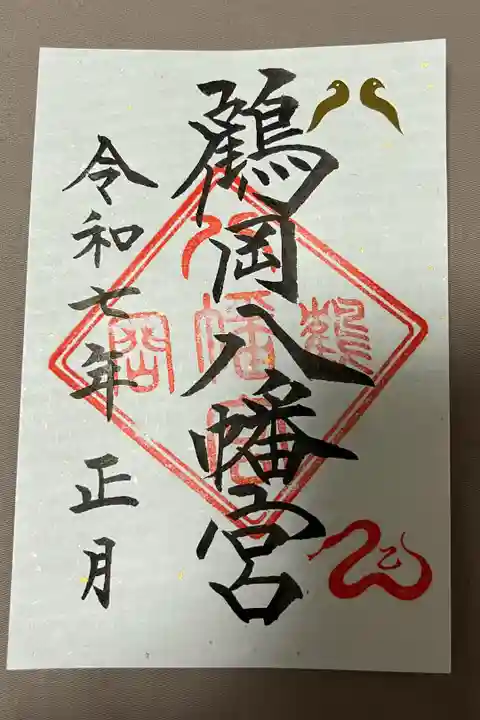 鶴岡八幡宮
令和七年 正月
巳